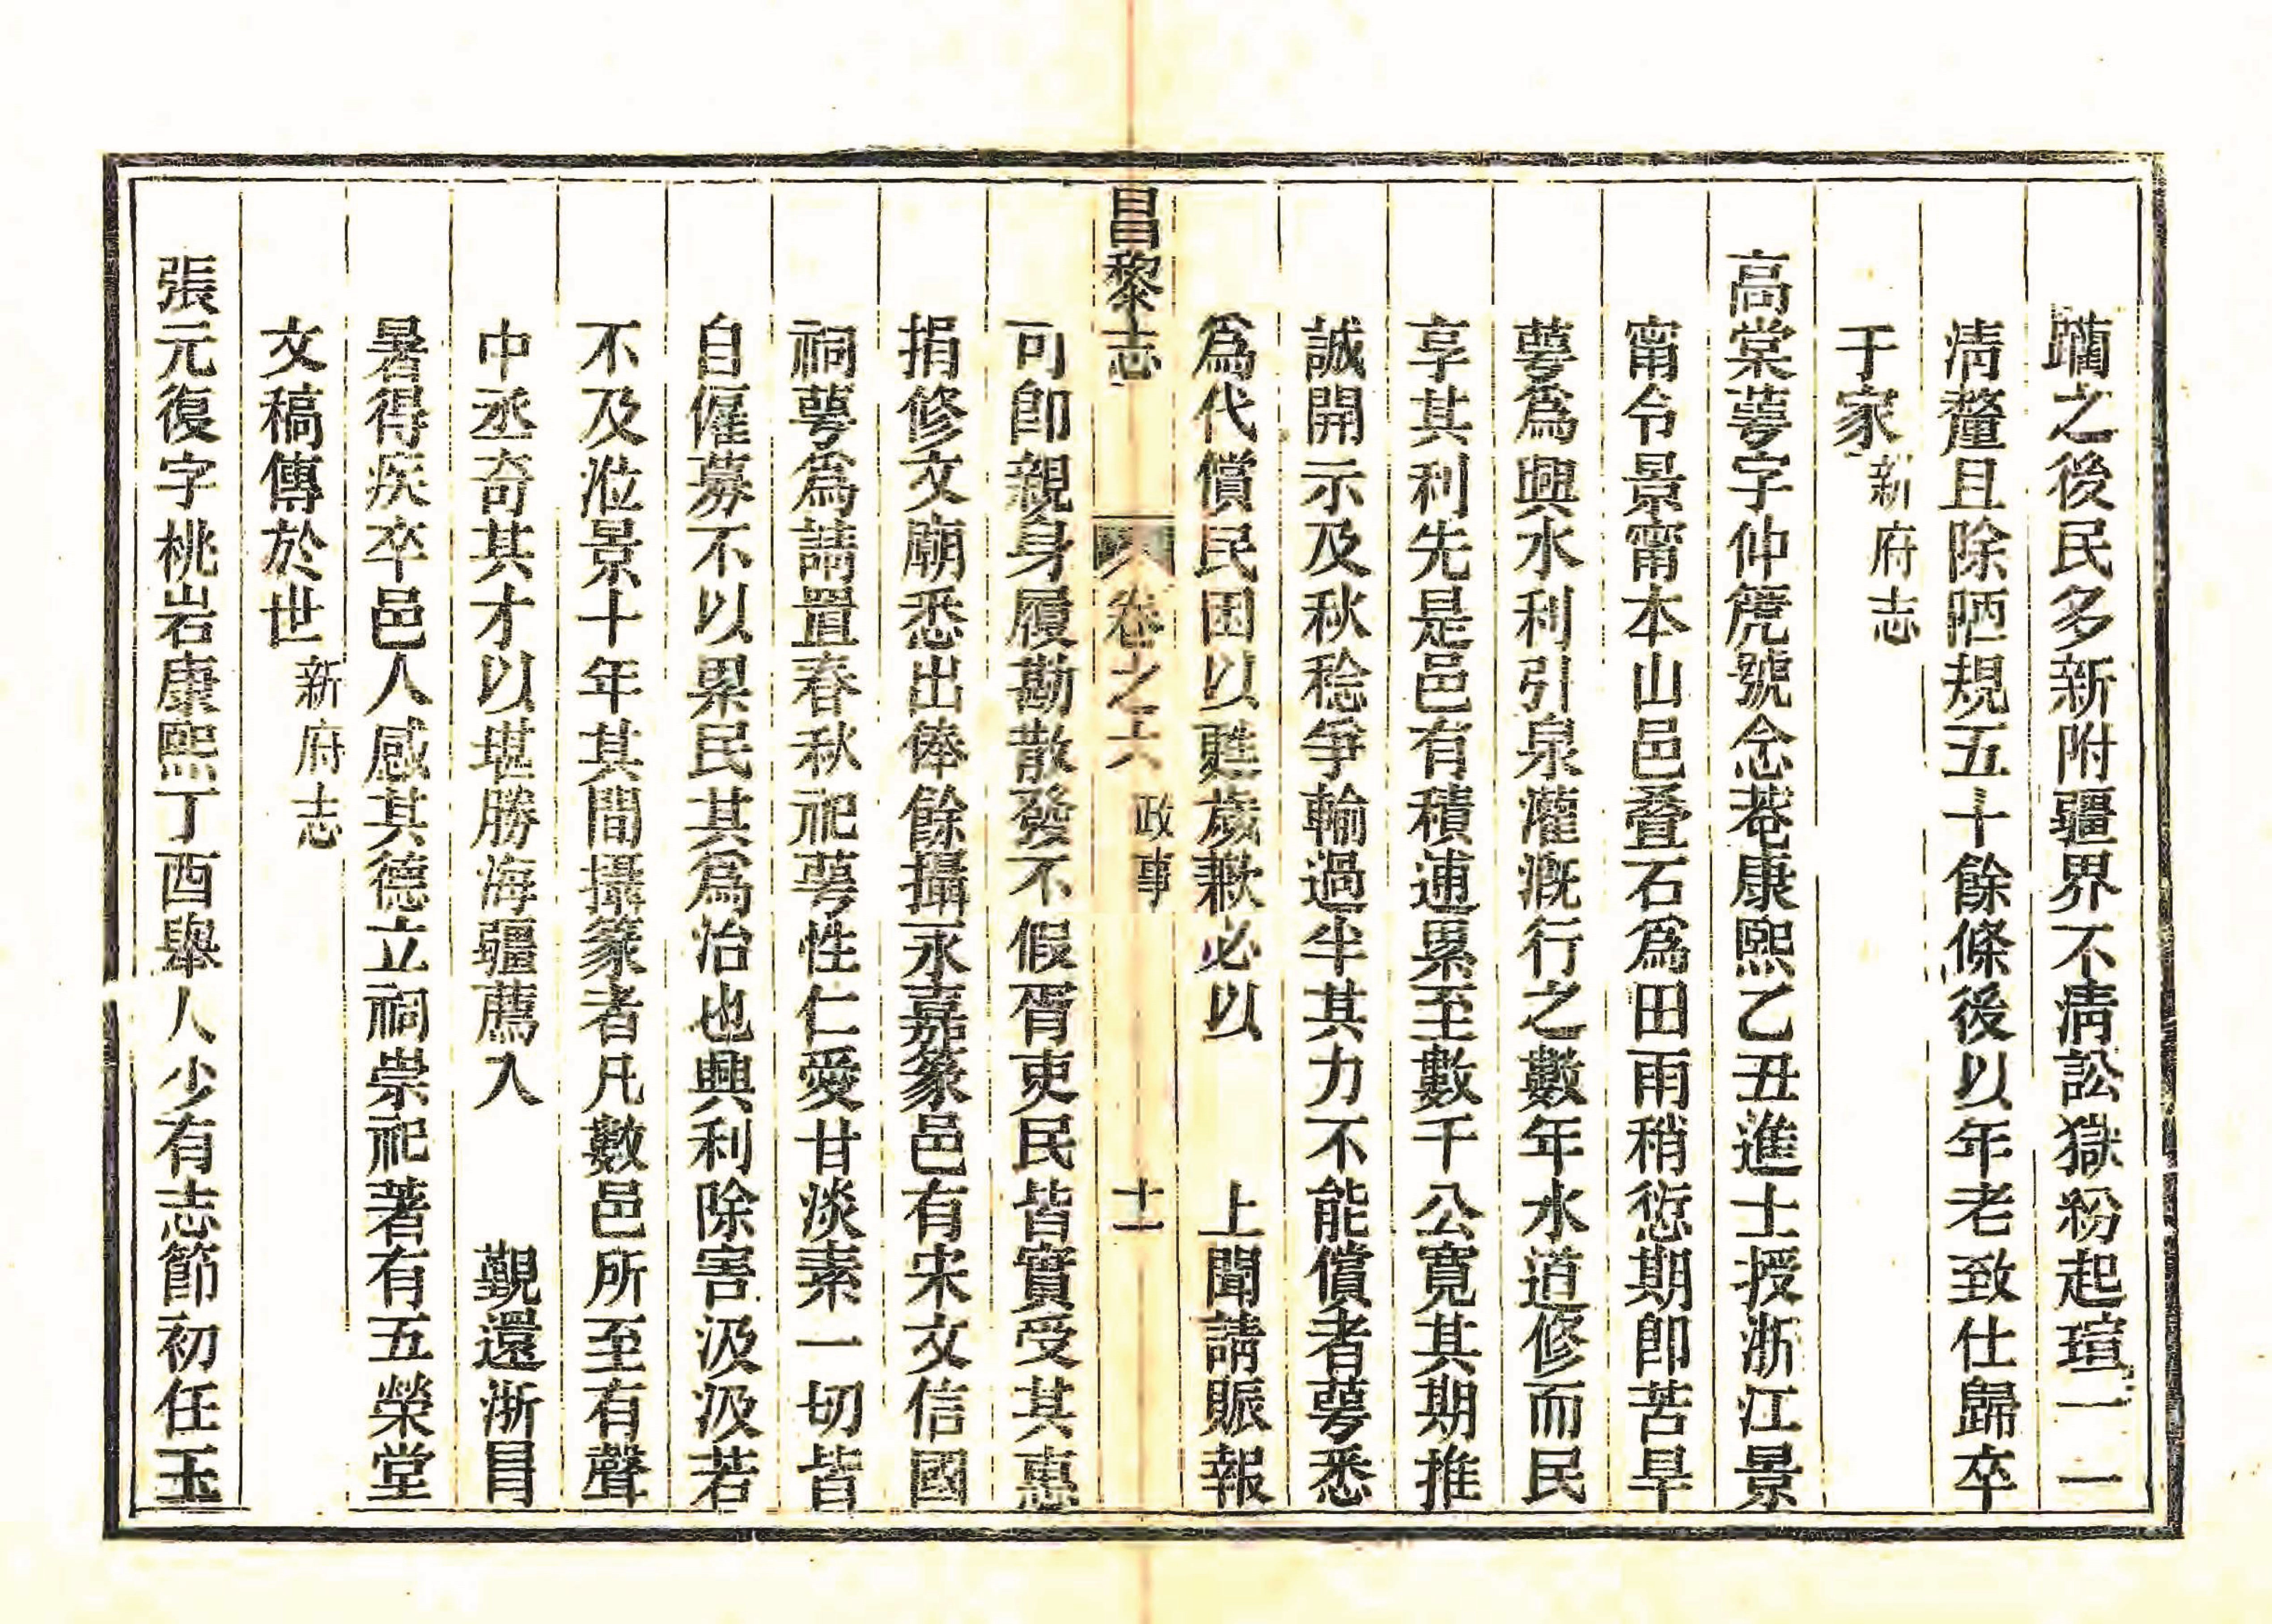 躪之後民多新附疆界不清訟獄紛起瑄一一
清釐且除陋規五十餘條後以年老致仕歸卒
于家新府志
高棠萼字仲篪號念菴康熙乙丑進士授浙江景
甯令景甯本山邑叠石爲田雨稍愆期即苦旱
萼爲興水利引泉灌漑行之數年水道修而民
享其利先是邑有積逋累至數千公寬其期推
誠開示及秋稔爭輸過半其力不能償者萼悉
爲代償民困以甦歲歉必以 上聞請賑報
昌黎志 卷之六 政事 十一
可即親身履勘散發不假胥吏民皆實受其惠
捐修文廟悉出俸餘攝永嘉篆邑有宋文信國
祠萼爲請置春秋祀萼性仁愛甘淡素一切皆
自僱募不以累民其爲治也興利除害汲汲若
不及涖景十年其間攝篆者凡數邑所至有聲
中丞奇其才以堪勝海疆薦入 覲還浙目
暑得疾卒邑人感其德立祠崇祀著有五榮堂
文稿傳於世新府志
張元復字桃岩康熙丁酉舉人少有志節初任玉